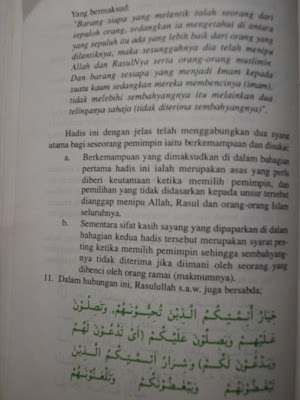 Yang bermaksud:
"Barang siapa yang melantik salah seorang dari
sepuloh orang, sedangkan ia mengetahui di antara
yang sepuluh itu ada yang lebih baik dari orang yang
dilantiknya, maka sesungguhnya dia telah menipu
Allah dan RasulNya serta orang-orang muslimin.
Dan barang sesiapa yang menjadi Imam kepada
suatu kaum sedangkan mereka membencinya (imam);
tidak melebihi sembahyangnya itu melainkan dua
telinganya sahaja (tidak diterima sembahyangnya)".
Hadis ini dengan jelas telah menggabungkan dua syarat
utama bagi seseorang pemimpin iaitu berkemampuan dan disukai:
a. Berkemampuan yang dimaksudkan di dalam bahagian
pertama hadis ini ialah merupakan asas yang perlu
diberi keutamaan ketika memilih pemimpin, dan
pemilihan yang tidak didasarkan kepada unsur tersebut
dianggap menipu Allah, Rasul dan orang-orang Islam
seluruhnya.
b. Sementara sifat kasih sayang yang dipaparkan di dalam
bahagian kedua hadis tersebut merupakan syarat pen-
ting ketika memilih pemimpin sehingga sembahyang-
nya tidak diterima jika diimani oleh seorang yang
dibenci oleh orang ramai (makmumnya).
11. Dalam hubungan ini, Rasulullah s.a.w. juga bersabda:
خِيَارُ أَئِمَّتِكُمُ الَّذِيْنَ تُحِبُّوْنَهُمْ، وَتُصَلُّوْنَ
عَلَيْهِمْ وَيُصَلُّوْنَ عَلَيْكُمْ (أَيْ تَدْعُوْنَ لَهُمْ
وَيَدْعُوْنَ لَكُمْ) وَشِرَارُ أَئِمَّتِكُمُ الَّذِيْنَ
تُبْغِضُوْنَهُمْ وَيُبْغِضُوْنَكُمْ وَتَلْعَنُوْنَهُمْ